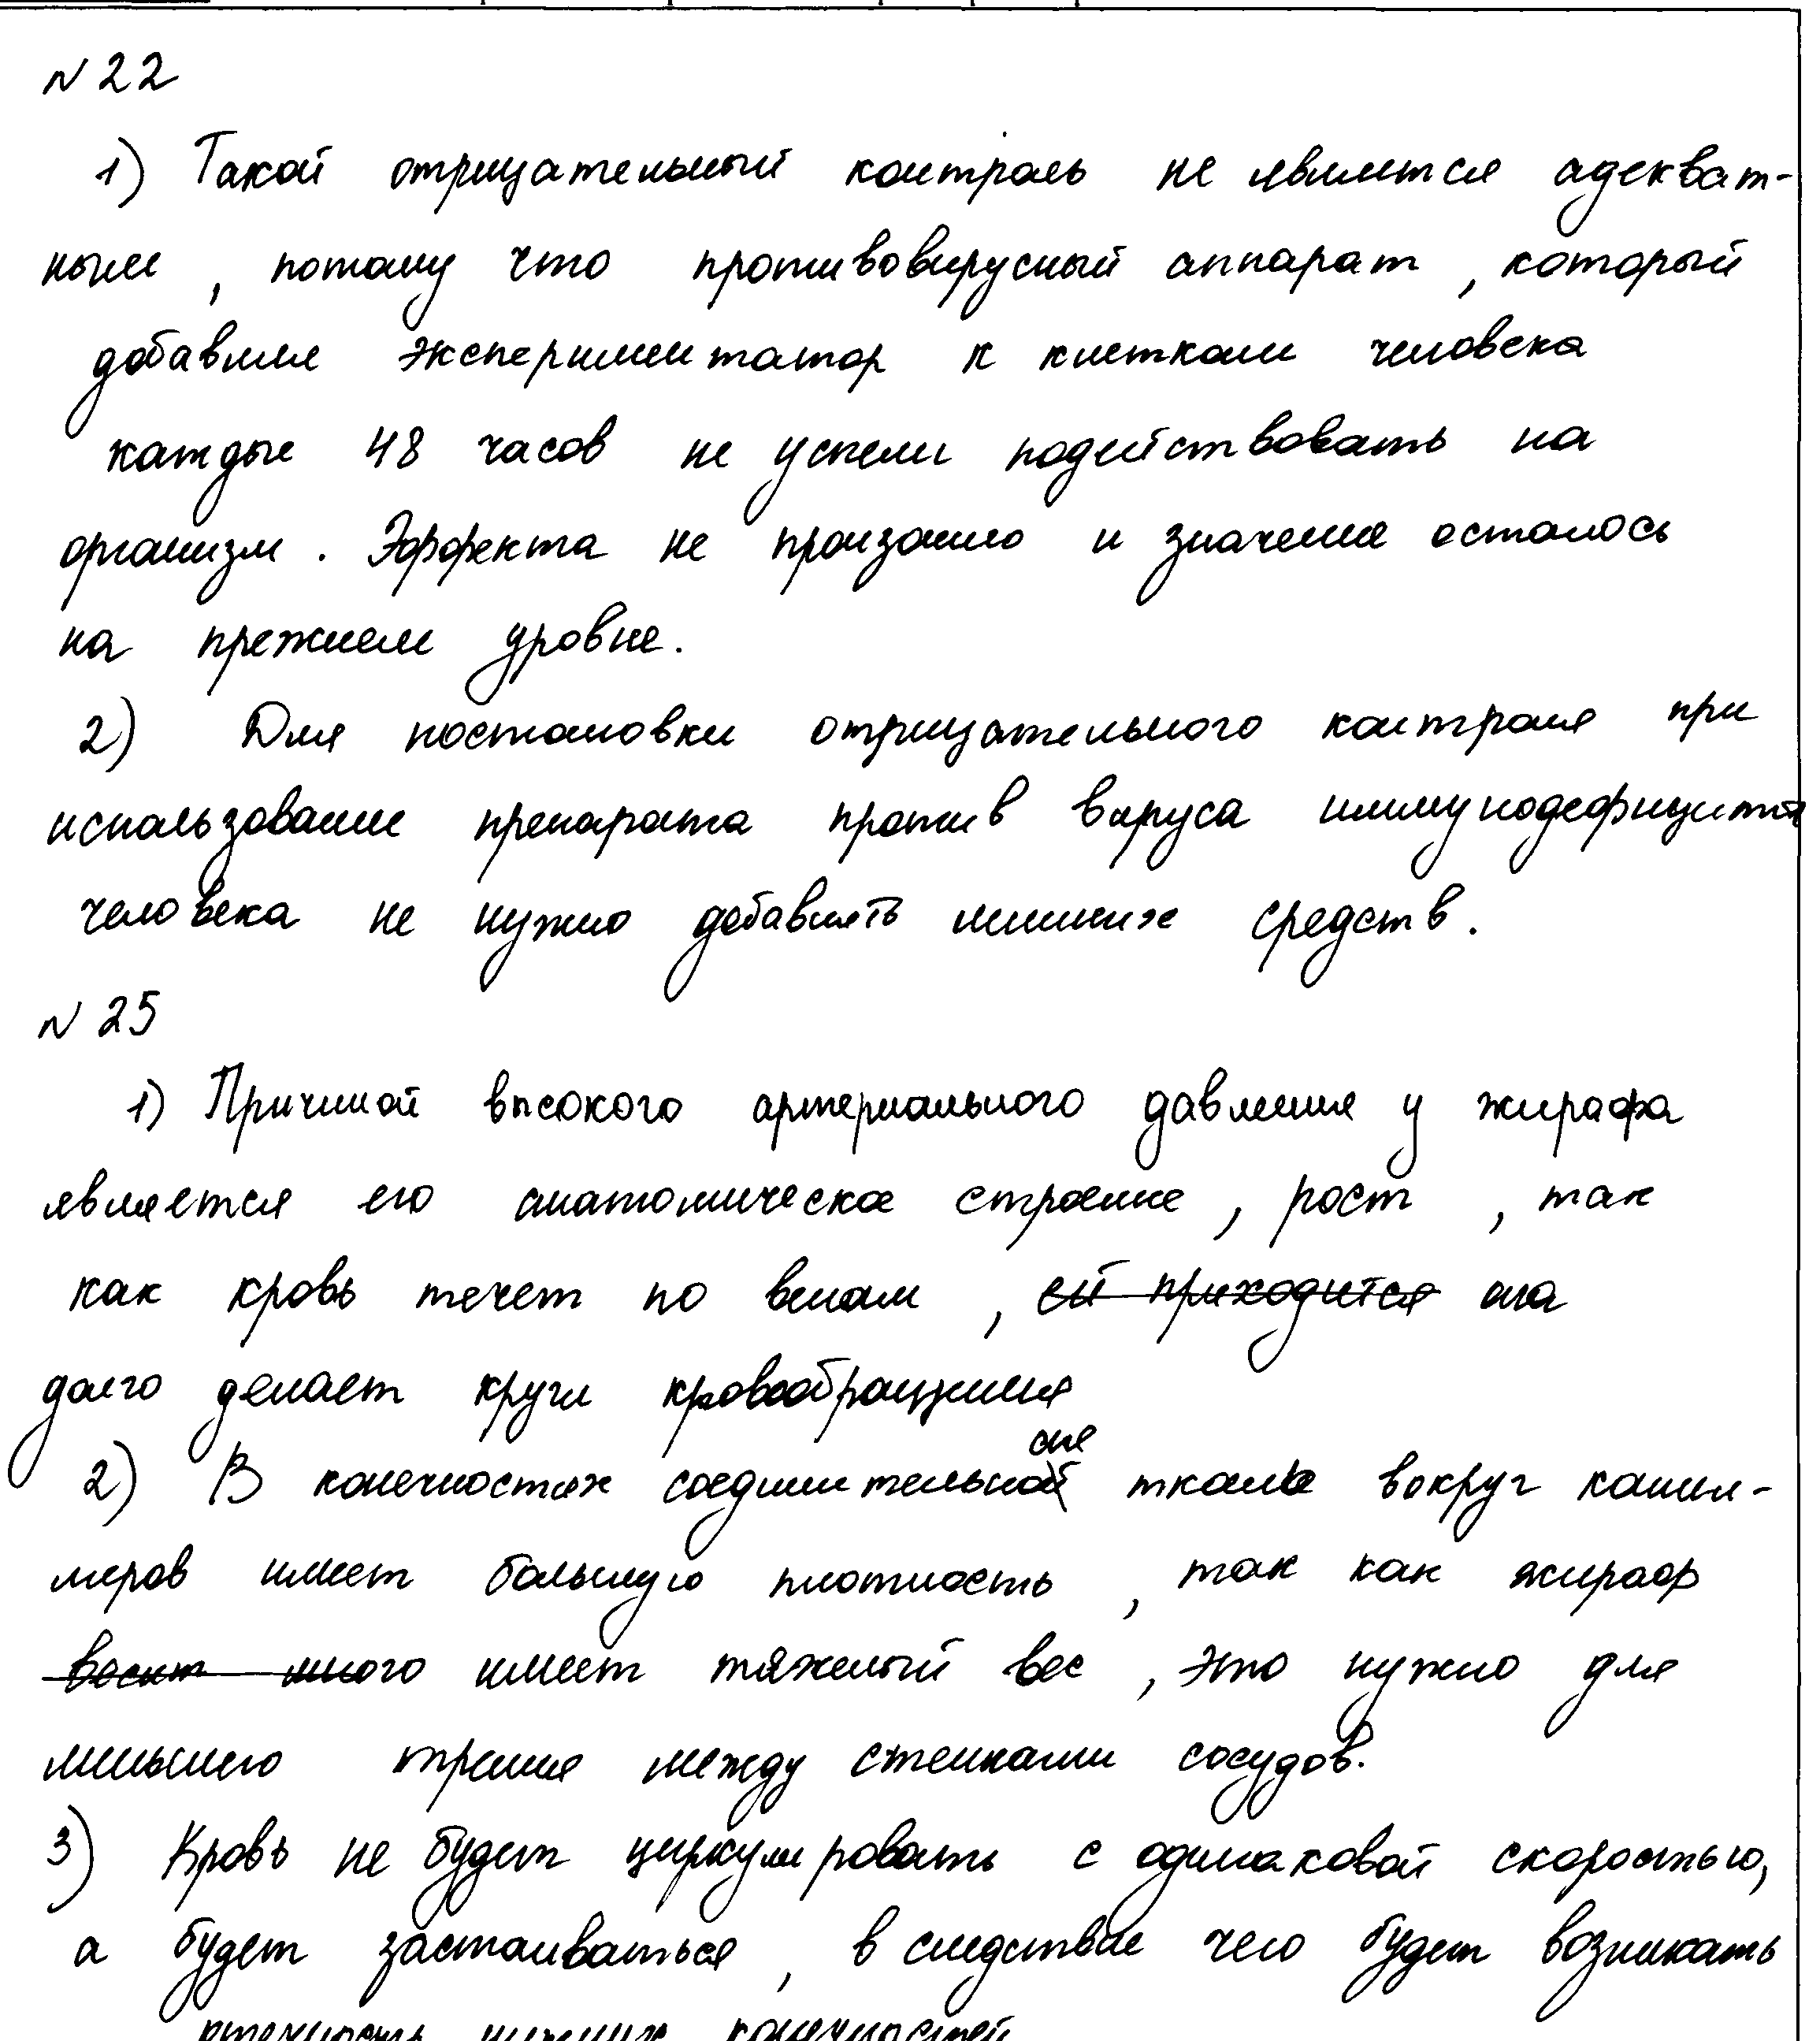 № 22
1) Такой отрицательный контроль не является адекват-
ным, потому что противовирусный аппарат, который
добавлял экспериментатор к клеткам человека
каждые 48 часов не успели подействовать на
организм. Эффекта не произошло и значение осталось
на прежнем уровне.
2) Для постановки отрицательного контроля при
использование препарата против вируса иммунодефицита
человека не нужно добавлять лишних средств.
№ 25
1) Причиной высокого артериального давления у жирафа
является его анатомическое строение, рост, так
как кровь течет по венам, ей приходится она
долго делает круги кровообращения
2) В конечностях соединительная ткань вокруг капил-
ляров имеет большую плотность, так как жираф
весит много имеет тяжелый вес, это нужно для
меньшего трения между стенками сосудов.
3) Кровь не будет циркулировать с одинаковой скоростью,
а будет застаиваться, в следствие чего будет возникать
отечность нижних конечностей